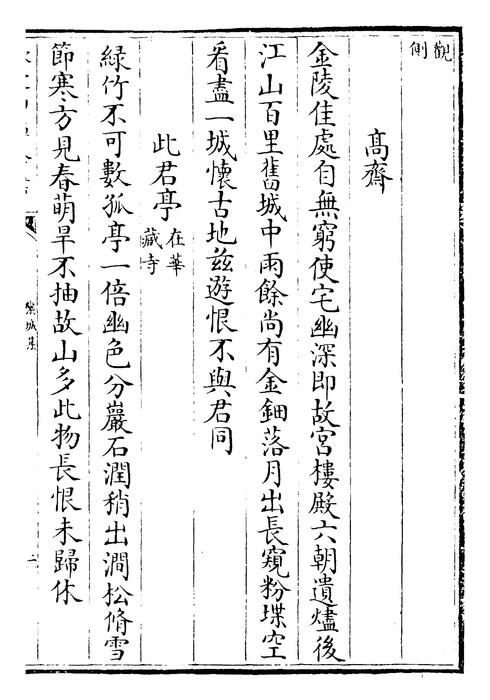 觀
側
髙齋
金陵佳處自無窮使宅幽深即故宫樓殿六朝遺燼後
江山百里舊城中雨餘尚有金鈿落月出長窺粉堞空
看盡一城懷古地兹遊恨不與君同
此君亭在華
藏寺
綠竹不可數孤亭一倍幽色分巖石潤稍出澗松脩雪
節寒方見春萌旱不抽故山多此物長恨未歸休
欒城集
二